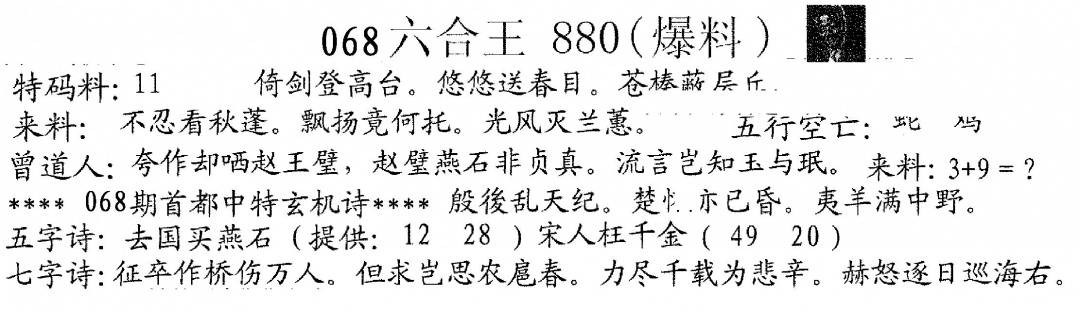 068六合王 880(爆料)
特码料: 11 倚剑登高台。悠悠送春目。苍榛蔽层丘.
来料: 不忍看秋蓬。飘扬竟何托。光风灭兰蕙。 五行空亡: 蛇 鸡
曾道人: 夸作却哂赵王璧, 赵璧燕石非贞真。流言岂知玉与珉。来料: 3+9 = ?
**** 068期首都中特玄机诗**** 殷後乱天纪。楚 亦已昏。夷羊满中野。
五字诗: 去国买燕石 (提供: 12 28 ) 宋人枉千金 ( 49 20 )
七字诗: 征卒作桥伤万人。但求岂思农扈春。力尽千载为悲辛。赫怒逐日巡海右。